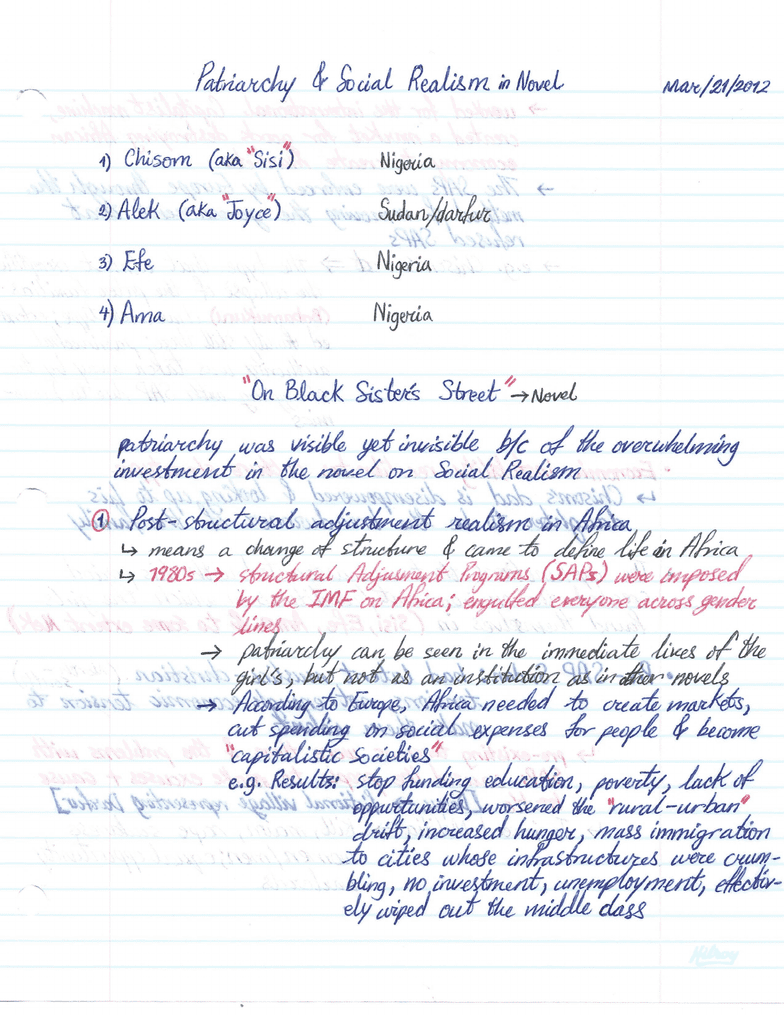 Patriarchy & Social Realism in Novel Mar/21/2012
1) Chisom (aka "Sisi") Nigeria
2) Alek (aka "Joyce") Sudan/darfur
3) Efe Nigeria
4) Ama Nigeria
"On Black Sister's Street" → Novel
patriarchy was visible yet invisible b/c of the overwhelming
investment in the novel on Social Realism
① Post-structural adjustment realism in Africa
↳ means a change of structure & came to define life in Africa
↳ 1980s → structural Adjusment Programs (SAPs) were imposed
by the IMF on Africa; engulfed everyone across gender
lines
→ patriarchy can be seen in the immediate lives of the
girl's, but not as an institution as in other novels
→ According to Europe, Africa needed to create markets,
cut spending on social expenses for people & become
"capitalistic societies"
e.g. Results: stop funding education, poverty, lack of
oppurtunities, worsened the "rural-urban"
drift, increased hunger, mass immigration
to cities whose infrastructures were crum-
bling, no investment, unemployment, effectiv-
ely wiped out the middle class
Hilroy